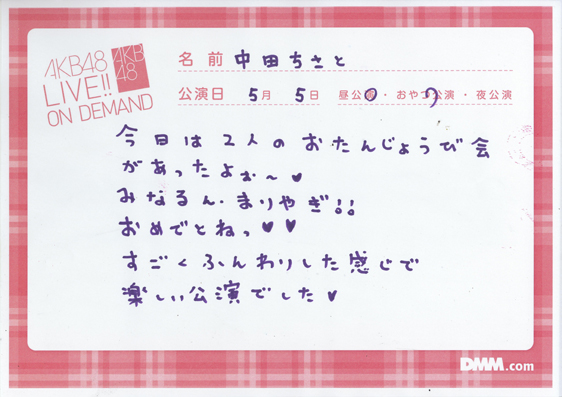 AKB48
LIVE!!
ON DEMAND
AKB
48
名前 中田ちさと
公演日 5月 5日 昼公演・おやつ公演・夜公演
今日は2人のおたんじょうび会
があったよぉ〜♥
みなるん・まりやぎ!!
おめでとねっ♥♥
すごくふんわりした感じで
楽しい公演でした♥
DMM.com